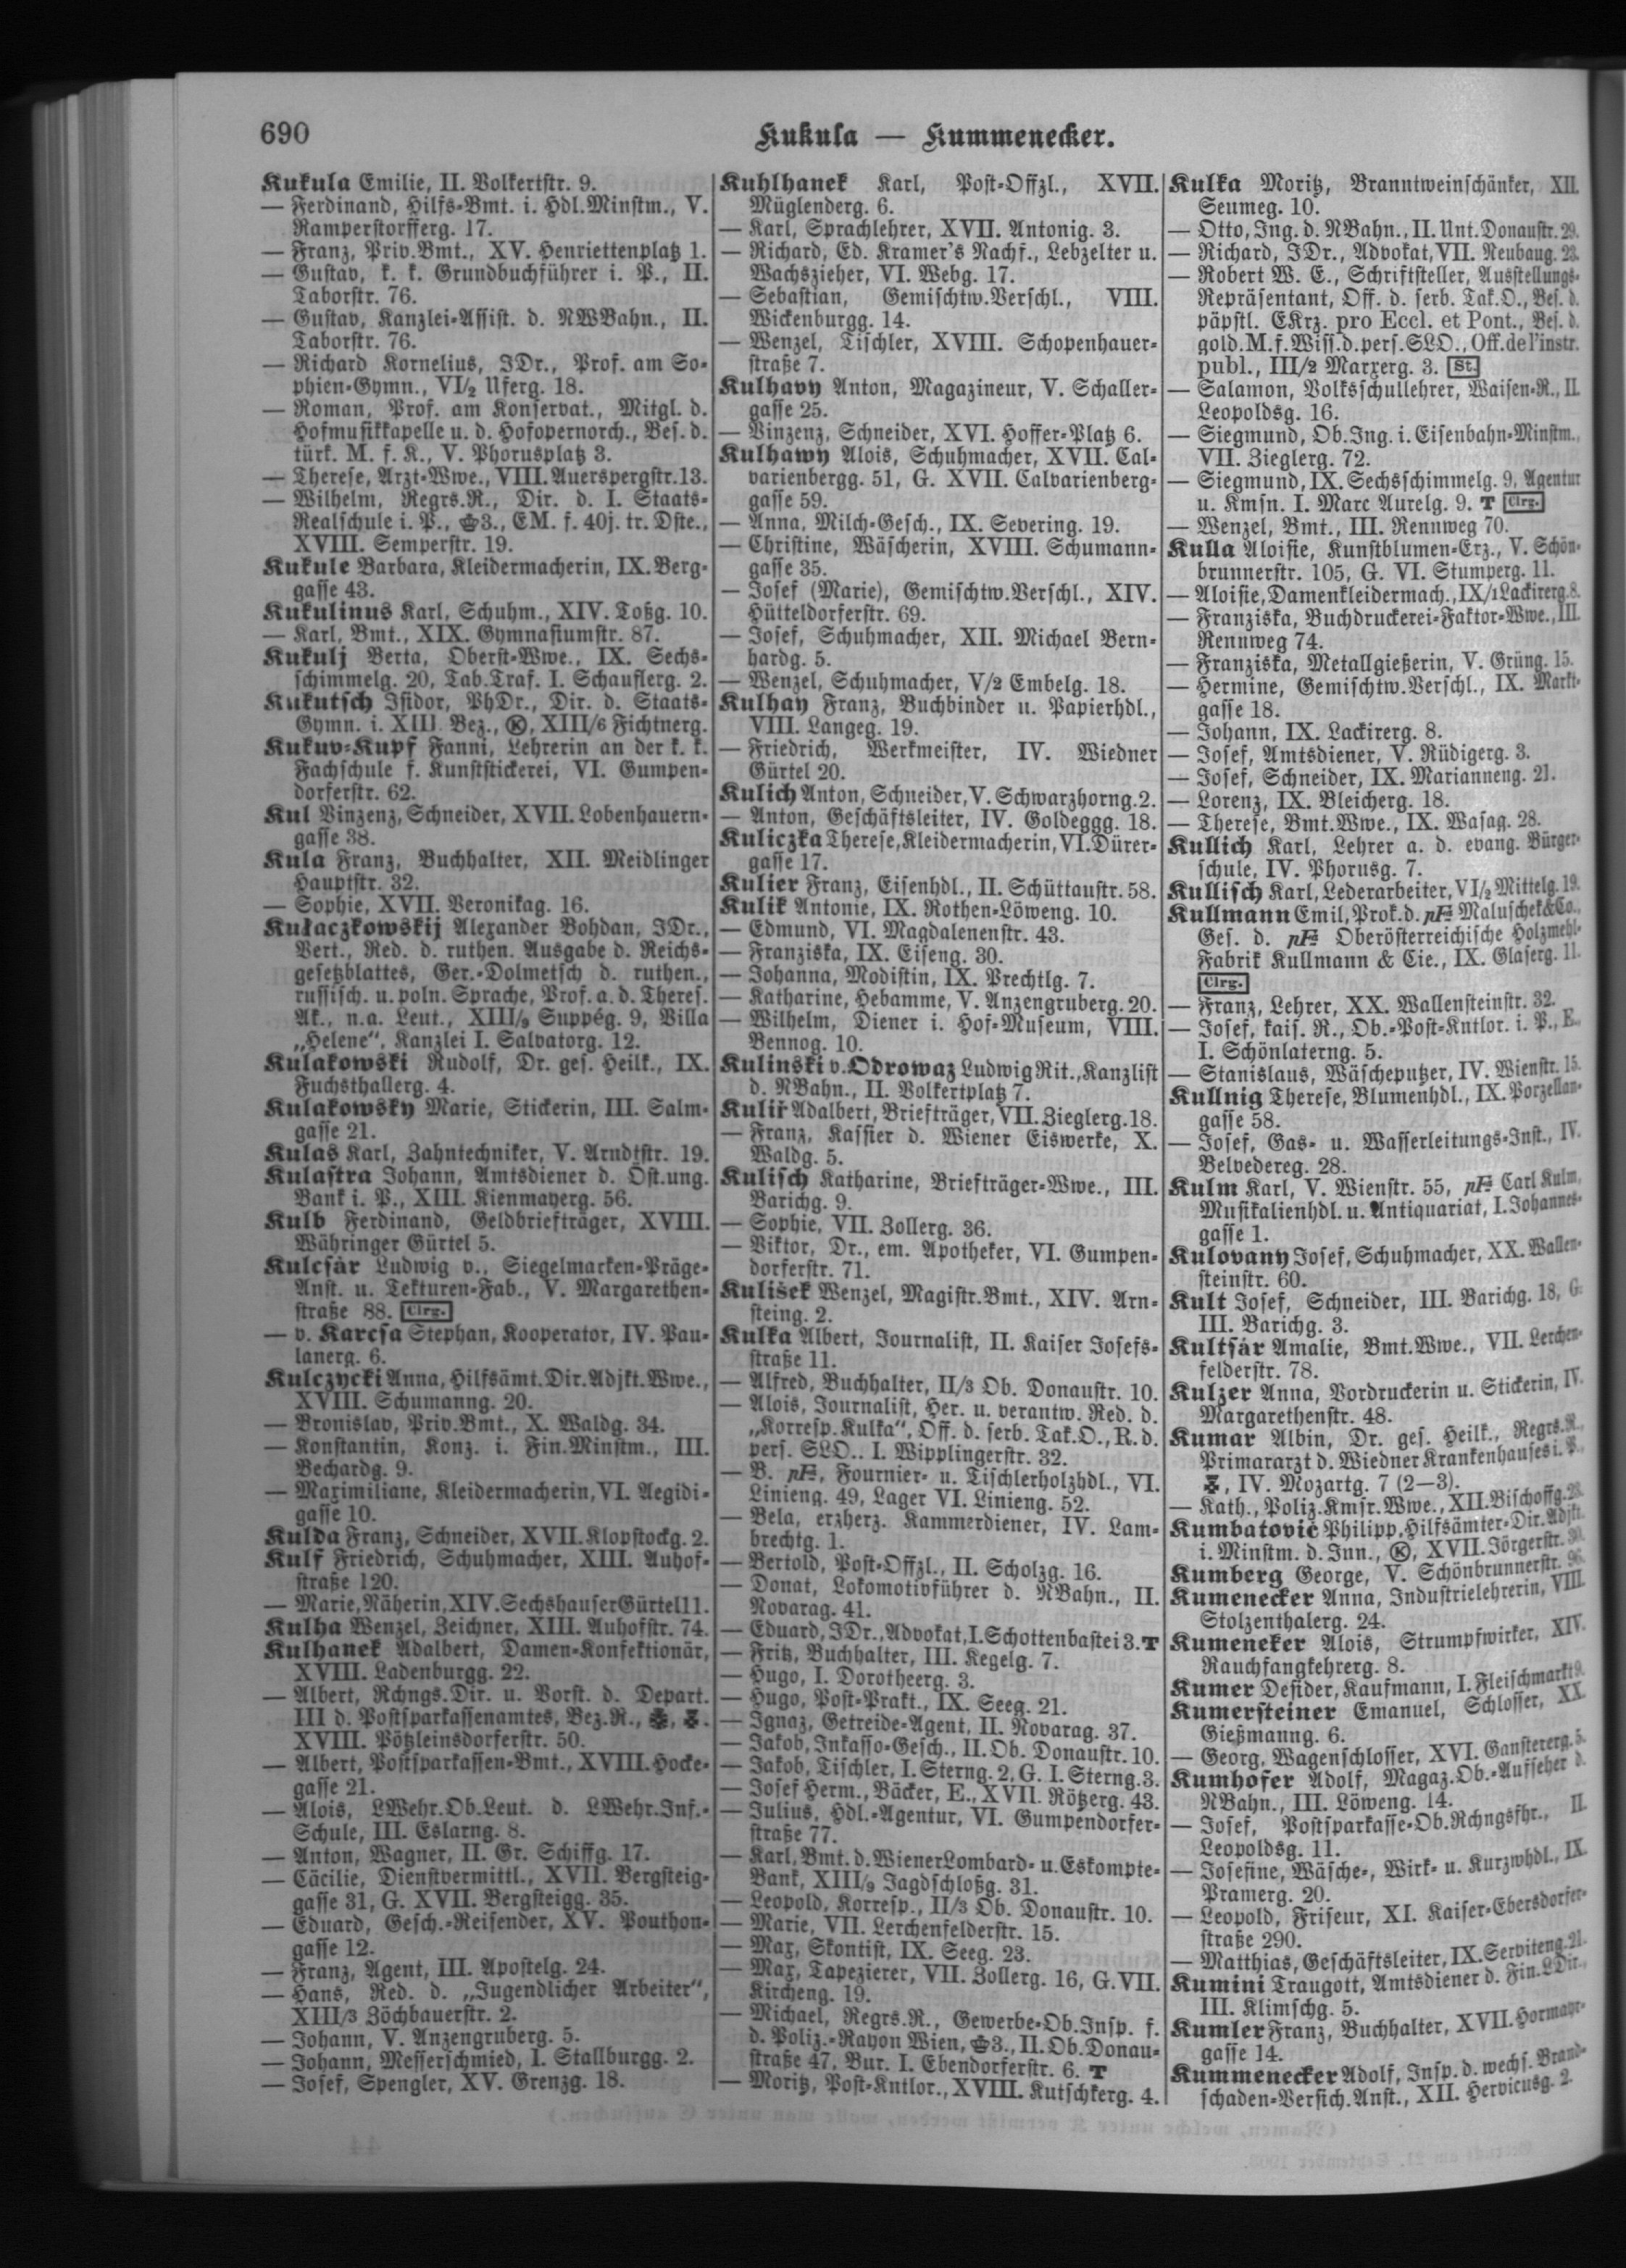 690
Kukula — Kummenecker.
Kukula Emilie, II. Volkertstr. 9.
— Ferdinand, Hilfs-Bmt. i. Hdl.Minstm., V.
Ramperstorfferg. 17.
— Franz, Priv.Bmt., XV. Henriettenplatz 1.
— Gustav, k. k. Grundbuchführer i. P., II.
Taborstr. 76.
— Gustav, Kanzlei-Assist. d. NWBahn., II.
Taborstr. 76.
— Richard Kornelius, JDr., Prof. am So-
phien-Gymn., VI/2 Uferg. 18.
— Roman, Prof. am Konservat., Mitgl. d.
Hofmusikkapelle u. d. Hofopernorch., Bes. d.
türk. M. f. K., V. Phorusplatz 3.
— Therese, Arzt-Wwe., VIII. Auerspergstr. 13.
— Wilhelm, Regrs.R., Dir. d. I. Staats-
Realschule i. P., 3., EM. f. 40j. tr. Dste.,
XVIII. Semperstr. 19.
Kukule Barbara, Kleidermacherin, IX. Berg-
gasse 43.
Kukulinus Karl, Schuhm., XIV. Toßg. 10.
— Karl, Bmt., XIX. Gymnasiumstr. 87.
Kukulj Berta, Oberst-Wwe., IX. Sechs-
schimmelg. 20, Tab.Traf. I. Schauflerg. 2.
Kukutsch Isidor, PhDr., Dir. d. Staats-
Gymn. i. XIII. Bez., Ⓚ, XIII/6 Fichtnerg.
Kukuv-Kupf Fanni, Lehrerin an der k. k.
Fachschule f. Kunststickerei, VI. Gumpen-
dorferstr. 62.
Kul Vinzenz, Schneider, XVII. Lobenhauern-
gasse 38.
Kula Franz, Buchhalter, XII. Meidlinger
Hauptstr. 32.
— Sophie, XVII. Veronikag. 16.
Kułaczkowskij Alexander Bohdan, JDr.,
Vert., Red. d. ruthen. Ausgabe d. Reichs-
gesetzblattes, Ger.-Dolmetsch d. ruthen.,
russisch. u. poln. Sprache, Prof. a. d. Theres.
Ak., n.a. Leut., XIII/9 Suppég. 9, Villa
„Helene“, Kanzlei I. Salvatorg. 12.
Kulakowski Rudolf, Dr. ges. Heilk., IX.
Fuchsthallerg. 4.
Kulakowsky Marie, Stickerin, III. Salm-
gasse 21.
Kulas Karl, Zahntechniker, V. Arndtstr. 19.
Kulastra Johann, Amtsdiener d. Öst.ung.
Bank i. P., XIII. Kienmayerg. 56.
Kulb Ferdinand, Geldbriefträger, XVIII.
Währinger Gürtel 5.
Kulcsár Ludwig v., Siegelmarken-Präge-
Anst. u. Tekturen-Fab., V. Margarethen-
straße 88. Clrg.
— v. Karcsa Stephan, Kooperator, IV. Pau-
lanerg. 6.
Kulczycki Anna, Hilfsämt.Dir.Adjkt.Wwe.,
XVIII. Schumanng. 20.
— Bronislav, Priv.Bmt., X. Waldg. 34.
— Konstantin, Konz. i. Fin.Minstm., III.
Bechardg. 9.
— Maximiliane, Kleidermacherin, VI. Aegidi-
gasse 10.
Kulda Franz, Schneider, XVII. Klopstockg. 2.
Kulf Friedrich, Schuhmacher, XIII. Auhof-
straße 120.
— Marie, Näherin, XIV. Sechshauser Gürtel 11.
Kulha Wenzel, Zeichner, XIII. Auhofstr. 74.
Kulhanek Adalbert, Damen-Konfektionär,
XVIII. Ladenburgg. 22.
— Albert, Rchngs.Dir. u. Vorst. d. Depart.
III d. Postsparkassenamtes, Bez.R.,
XVIII. Pötzleinsdorferstr. 50.
— Albert, Postsparkassen-Bmt., XVIII. Hocke-
gasse 21.
— Alois, LWehr.Ob.Leut. d. LWehr.Inf.-
Schule, III. Eslarng. 8.
— Anton, Wagner, II. Gr. Schiffg. 17.
— Cäcilie, Dienstvermittl., XVII. Bergsteig-
gasse 31, G. XVII. Bergsteigg. 35.
— Eduard, Gesch.-Reisender, XV. Pouthon-
gasse 12.
— Franz, Agent, III. Apostelg. 24.
— Hans, Red. d. „Jugendlicher Arbeiter“,
XIII/3 Zöchbauerstr. 2.
— Johann, V. Anzengruberg. 5.
— Johann, Messerschmied, I. Stallburgg. 2.
— Josef, Spengler, XV. Grenzg. 18.
Kuhlhanek Karl, Post-Offzl., XVII.
Müglenderg. 6.
— Karl, Sprachlehrer, XVII. Antonig. 3.
— Richard, Ed. Kramer's Nachf., Lebzelter u.
Wachszieher, VI. Webg. 17.
— Sebastian, Gemischtw.Verschl., VIII.
Wickenburgg. 14.
— Wenzel, Tischler, XVIII. Schopenhauer-
straße 7.
Kulhavy Anton, Magazineur, V. Schaller-
gasse 25.
— Vinzenz, Schneider, XVI. Hoffer-Platz 6.
Kulhawy Alois, Schuhmacher, XVII. Cal-
varienbergg. 51, G. XVII. Calvarienberg-
gasse 59.
— Anna, Milch-Gesch., IX. Severing. 19.
— Christine, Wäscherin, XVIII. Schumann-
gasse 35.
— Josef (Marie), Gemischtw.Verschl., XIV.
Hütteldorferstr. 69.
— Josef, Schuhmacher, XII. Michael Bern-
hardg. 5.
— Wenzel, Schuhmacher, V/2 Embelg. 18.
Kulhay Franz, Buchbinder u. Papierhdl.,
VIII. Langeg. 19.
— Friedrich, Werkmeister, IV. Wiedner
Gürtel 20.
Kulich Anton, Schneider, V. Schwarzhorng. 2.
— Anton, Geschäftsleiter, IV. Goldeggg. 18.
Kuliczka Therese, Kleidermacherin, VI. Dürer-
gasse 17.
Kulier Franz, Eisenhdl., II. Schüttaustr. 58.
Kulik Antonie, IX. Rothen-Löweng. 10.
— Edmund, VI. Magdalenenstr. 43.
— Franziska, IX. Eiseng. 30.
— Johanna, Modistin, IX. Prechtlg. 7.
— Katharine, Hebamme, V. Anzengruberg. 20.
— Wilhelm, Diener i. Hof-Museum, VIII.
Bennog. 10.
Kulinski v. Odrowaz Ludwig Rit., Kanzlist
d. NBahn., II. Volkertplatz 7.
Kuliř Adalbert, Briefträger, VII. Zieglerg. 18.
— Franz, Kassier d. Wiener Eiswerke, X.
Waldg. 5.
Kulisch Katharine, Briefträger-Wwe., III.
Barichg. 9.
— Sophie, VII. Zollerg. 36.
— Viktor, Dr., em. Apotheker, VI. Gumpen-
dorferstr. 71.
Kulišek Wenzel, Magistr.Bmt., XIV. Arn-
steing. 2.
Kulka Albert, Journalist, II. Kaiser Josefs-
straße 11.
— Alfred, Buchhalter, II/3 Ob. Donaustr. 10.
— Alois, Journalist, Her. u. verantw. Red. d.
„Korresp. Kulka“, Off. d. serb. Tak.O., R. d.
pers. SLO.. I. Wipplingerstr. 32.
— B. pF, Fournier- u. Tischlerholzhdl., VI.
Linieng. 49, Lager VI. Linieng. 52.
— Bela, erzherz. Kammerdiener, IV. Lam-
brechtg. 1.
— Bertold, Post-Offzl., II. Scholzg. 16.
— Donat, Lokomotivführer d. NBahn., II.
Novarag. 41.
— Eduard, JDr., Advokat, I. Schottenbastei 3. T
— Fritz, Buchhalter, III. Kegelg. 7.
— Hugo, I. Dorotheerg. 3.
— Hugo, Post-Prakt., IX. Seeg. 21.
— Ignaz, Getreide-Agent, II. Novarag. 37.
— Jakob, Inkasso-Gesch., II. Ob. Donaustr. 10.
— Jakob, Tischler, I. Sterng. 2, G. I. Sterng. 3.
— Josef Herm., Bäcker, E., XVII. Rötzerg. 43.
— Julius, Hdl.-Agentur, VI. Gumpendorfer-
straße 77.
— Karl, Bmt. d. Wiener Lombard- u. Eskompte-
Bank, XIII/9 Jagdschloßg. 31.
— Leopold, Korresp., II/3 Ob. Donaustr. 10.
— Marie, VII. Lerchenfelderstr. 15.
— Max, Skontist, IX. Seeg. 23.
— Max, Tapezierer, VII. Zollerg. 16, G. VII.
Kircheng. 19.
— Michael, Regrs.R., Gewerbe-Ob.Insp. f.
d. Poliz.-Rayon Wien, 3., II. Ob. Donau-
straße 47, Bur. I. Ebendorferstr. 6. T
— Moritz, Post-Kntlor., XVIII. Kutschkerg. 4.
Kulka Moritz, Branntweinschänker, XII.
Seumeg. 10.
— Otto, Ing. d. NBahn., II. Unt. Donaustr. 29.
— Richard, JDr., Advokat, VII. Neubaug. 23.
— Robert W. E., Schriftsteller, Ausstellungs-
Repräsentant, Off. d. serb. Tak.O., Bes. d.
päpstl. EKrz. pro Eccl. et Pont., Bes. d.
gold. M. f. Wiss. d. pers. SLO., Off. de l'instr.
publ., III/2 Marxerg. 3. St.
— Salamon, Volksschullehrer, Waisen-R., II.
Leopoldsg. 16.
— Siegmund, Ob.Ing. i. Eisenbahn-Minstm.,
VII. Zieglerg. 72.
— Siegmund, IX. Sechsschimmelg. 9, Agentur
u. Kmsn. I. Marc Aurelg. 9. T Clrg.
— Wenzel, Bmt., III. Rennweg 70.
Kulla Aloisie, Kunstblumen-Erz., V. Schön-
brunnerstr. 105, G. VI. Stumperg. 11.
— Aloisie, Damenkleidermach., IX/1 Lackirerg. 8.
— Franziska, Buchdruckerei-Faktor-Wwe., III.
Rennweg 74.
— Franziska, Metallgießerin, V. Grüng. 15.
— Hermine, Gemischtw.Verschl., IX. Markt-
gasse 18.
— Johann, IX. Lackirerg. 8.
— Josef, Amtsdiener, V. Rüdigerg. 3.
— Josef, Schneider, IX. Marianneng. 21.
— Lorenz, IX. Bleicherg. 18.
— Therese, Bmt.Wwe., IX. Wasag. 28.
Kullich Karl, Lehrer a. d. evang. Bürger-
schule, IV. Phorusg. 7.
Kullisch Karl, Lederarbeiter, VI/2 Mittelg. 19.
Kullmann Emil, Prok. d. pF Maluschek & Co.,
Ges. d. pF Oberösterreichische Holzmehl-
Fabrik Kullmann & Cie., IX. Glaserg. 11.
Clrg.
— Franz, Lehrer, XX. Wallensteinstr. 32.
— Josef, kais. R., Ob.-Post-Kntlor. i. P., E.,
I. Schönlaterng. 5.
— Stanislaus, Wäscheputzer, IV. Wienstr. 15.
Kullnig Therese, Blumenhdl., IX. Porzellan-
gasse 58.
— Josef, Gas- u. Wasserleitungs-Inst., IV.
Belvedereg. 28.
Kulm Karl, V. Wienstr. 55, pF Carl Kulm,
Musikalienhdl. u. Antiquariat, I. Johannes-
gasse 1.
Kulovany Josef, Schuhmacher, XX. Wallen-
steinstr. 60.
Kult Josef, Schneider, III. Barichg. 18, G.
III. Barichg. 3.
Kultsár Amalie, Bmt.Wwe., VII. Lerchen-
felderstr. 78.
Kulzer Anna, Vordruckerin u. Stickerin, IV.
Margarethenstr. 48.
Kumar Albin, Dr. ges. Heilk., Regrs.R.,
Primararzt d. Wiedner Krankenhauses i. P.,
, IV. Mozartg. 7 (2—3).
— Kath., Poliz.Kmsr.Wwe., XII. Bischoffg.
Kumbatovič Philipp, Hilfsämter-Dir.Adjkt.
i. Minstm. d. Inn., Ⓚ, XVII. Jörgerstr. 30.
Kumberg George, V. Schönbrunnerstr. 96.
Kumenecker Anna, Industrielehrerin, VIII.
Stolzenthalerg. 24.
Kumeneker Alois, Strumpfwirker, XIV.
Rauchfangkehrerg. 8.
Kumer Desider, Kaufmann, I. Fleischmarkt 9.
Kumersteiner Emanuel, Schlosser, XX.
Gießmanng. 6.
— Georg, Wagenschlosser, XVI. Gansterergg. 5.
Kumhofer Adolf, Magaz.Ob.-Aufseher d.
NBahn., III. Löweng. 14.
— Josef, Postsparkasse-Ob.Rchngsfhr., II.
Leopoldsg. 11.
— Josefine, Wäsche-, Wirk- u. Kurzwhdl., IX.
Pramerg. 20.
— Leopold, Friseur, XI. Kaiser-Ebersdorfer-
straße 290.
— Matthias, Geschäftsleiter, IX. Serviteng. 21.
Kumini Traugott, Amtsdiener d. Fin.LDir.,
III. Klimschg. 5.
Kumler Franz, Buchhalter, XVII. Hormayr-
gasse 14.
Kummenecker Adolf, Insp. d. wechs. Brand-
schaden-Versich.Anst., XII. Hervicusg. 2.